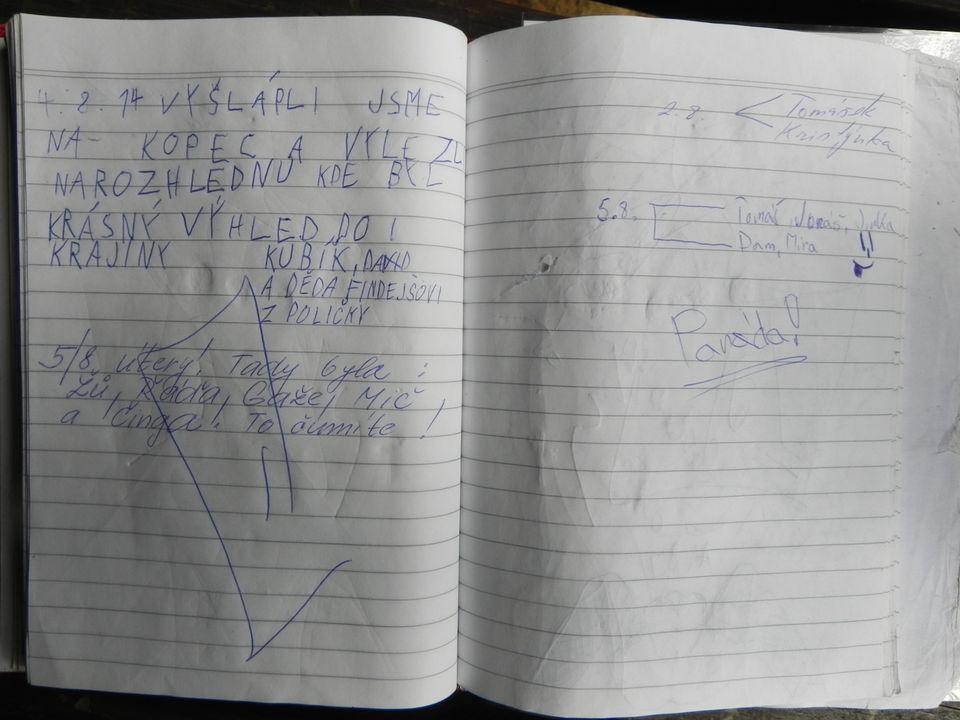 4. 8. 14 VYŠLÁPLI JSME
NA KOPEC A VYLEZLI
NAROZHLEDNU KDE BYL
KRÁSNÝ VÝHLED DO
KRAJINY KUBÍK, DAVID
A DĚDA FINDEJSOVI
Z POLIČKY
5/8 úterý! Tady byla:
Žů, Řáďa, Gažej, Mič
a Činga! To čumíte!
2.8. Tomášek
Kristýnka
5.8. Tomáš, Jonáš, Jinka
Dam, Míra
Paráda!